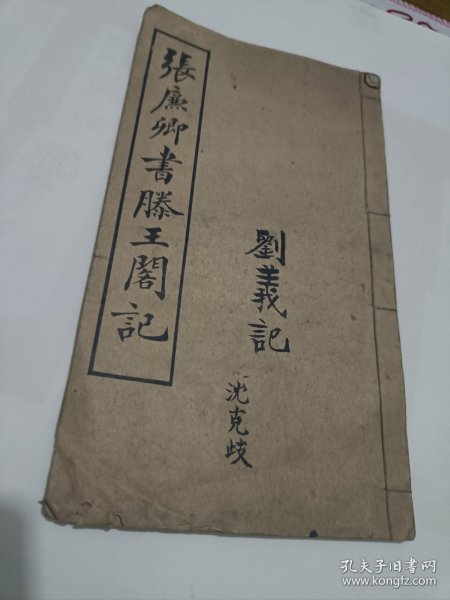 張廉卿書滕王閣記
劉義記
沈克歧
孔夫子旧书网
www.kongfz.com